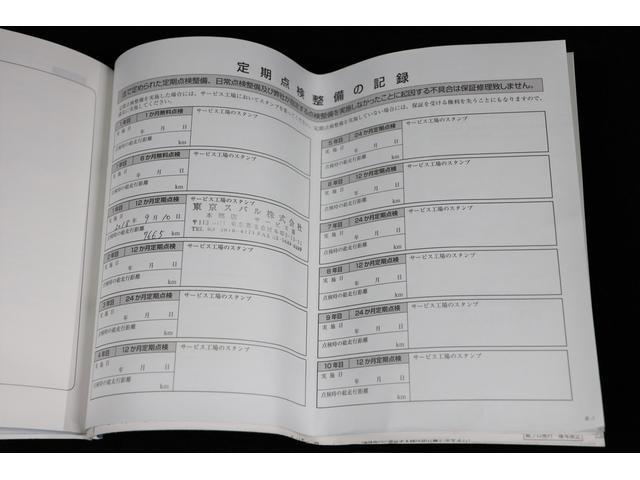 定期点検整備の記録
法で定められた定期点検整備、日常点検整備及び弊社が指定する点検整備を実施しなかったことに起因する不具合は保証修理致しません。
1年目 1か月無料点検 サービス工場のスタンプ
実施日 年 月 日
点検時の総走行距離 km
1年目 6か月無料点検 サービス工場のスタンプ
実施日 年 月 日
点検時の総走行距離 km
1年目 12か月定期点検 サービス工場のスタンプ
実施日 2018年 9月 10日
点検時の総走行距離 7665 km
東京スバル株式会社
2年目 12か月定期点検 サービス工場のスタンプ
実施日 年 月 日
点検時の総走行距離 km
3年目 24か月定期点検 サービス工場のスタンプ
実施日 年 月 日
点検時の総走行距離 km
4年目 12か月定期点検 サービス工場のスタンプ
実施日 年 月 日
点検時の総走行距離 km
5年目 24か月定期点検 サービス工場のスタンプ
実施日 年 月 日
点検時の総走行距離 km
6年目 12か月定期点検 サービス工場のスタンプ
実施日 年 月 日
点検時の総走行距離 km
7年目 24か月定期点検 サービス工場のスタンプ
実施日 年 月 日
点検時の総走行距離 km
8年目 12か月定期点検 サービス工場のスタンプ
実施日 年 月 日
点検時の総走行距離 km
9年目 24か月定期点検 サービス工場のスタンプ
実施日 年 月 日
点検時の総走行距離 km
10年目 12か月定期点検 サービス工場のスタンプ
実施日 年 月 日
点検時の総走行距離 km